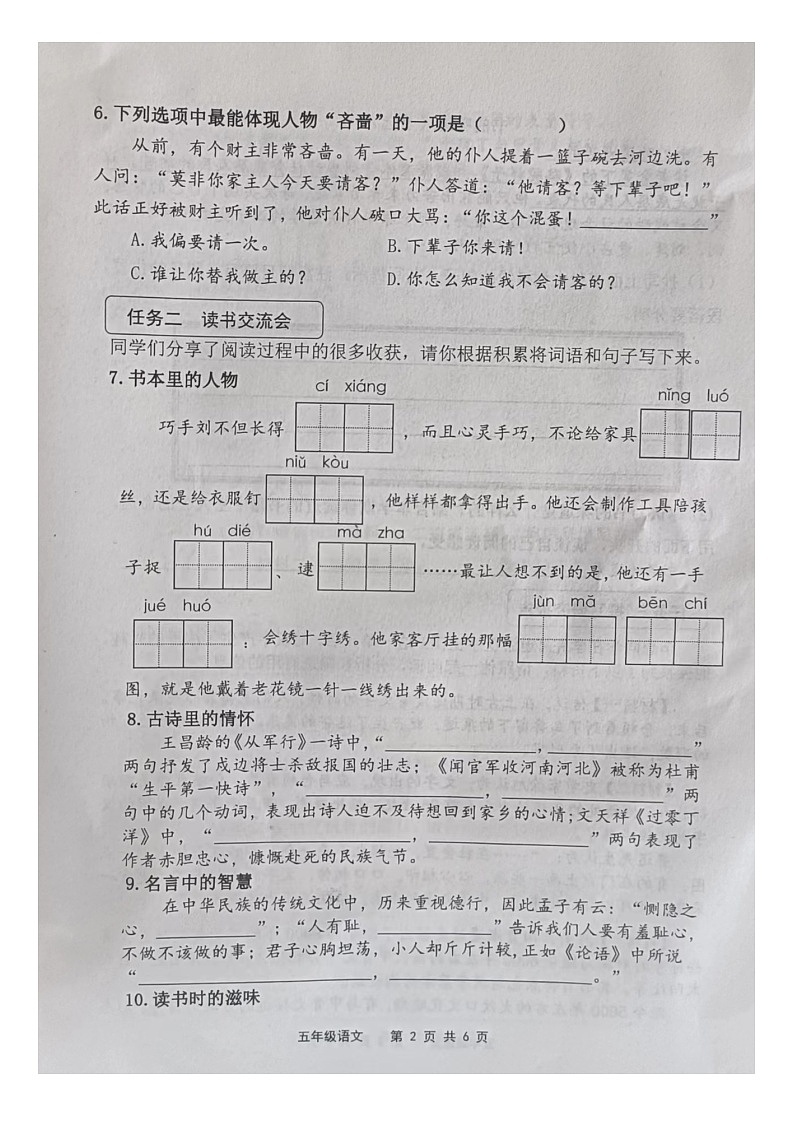 6. 下列选项中最能体现人物“吝啬”的一项是（　　　）
从前，有个财主非常吝啬。有一天，他的仆人提着一篮子碗去河边洗。有
人问：“莫非你家主人今天要请客？”仆人答道：“他请客？等下辈子吧！”
此话正好被财主听到了，他对仆人破口大骂：“你这个混蛋！____________”
A. 我偏要请一次。　　B. 下辈子你来请！
C. 谁让你替我做主的？　　D. 你怎么知道我不会请客的？
任务二　读书交流会
同学们分享了阅读过程中的很多收获，请你根据积累将词语和句子写下来。
7. 书本里的人物
cí xiáng　　nǐng luó
巧手刘不但长得　　，而且心灵手巧，不论给家具
niǔ kòu
丝，还是给衣服钉　　，他样样都拿得出手。他还会制作工具陪孩
hú dié　　mà zha
子捉　　、逮　　……最让人想不到的是，他还有一手
jué huó　　jùn mǎ　　bēn chí
：会绣十字绣。他家客厅挂的那幅
图，就是他戴着老花镜一针一线绣出来的。
8. 古诗里的情怀
王昌龄的《从军行》一诗中，“____________，____________”
两句抒发了戍边将士杀敌报国的壮志；《闻官军收河南河北》被称为杜甫
“生平第一快诗”，“____________，____________”两
句中的几个动词，表现出诗人迫不及待想回到家乡的心情；文天祥《过零丁
洋》中，“____________，____________”两句表现了
作者赤胆忠心，慷慨赴死的民族气节。
9. 名言中的智慧
在中华民族的传统文化中，历来重视德行，因此孟子有云：“恻隐之
心，________”；“人有耻，________”告诉我们人要有羞耻心，
不做不该做的事；君子心胸坦荡，小人却斤斤计较，正如《论语》中所说
“____________，____________。”
10. 读书时的滋味
五年级语文　第 2 页 共 6 页